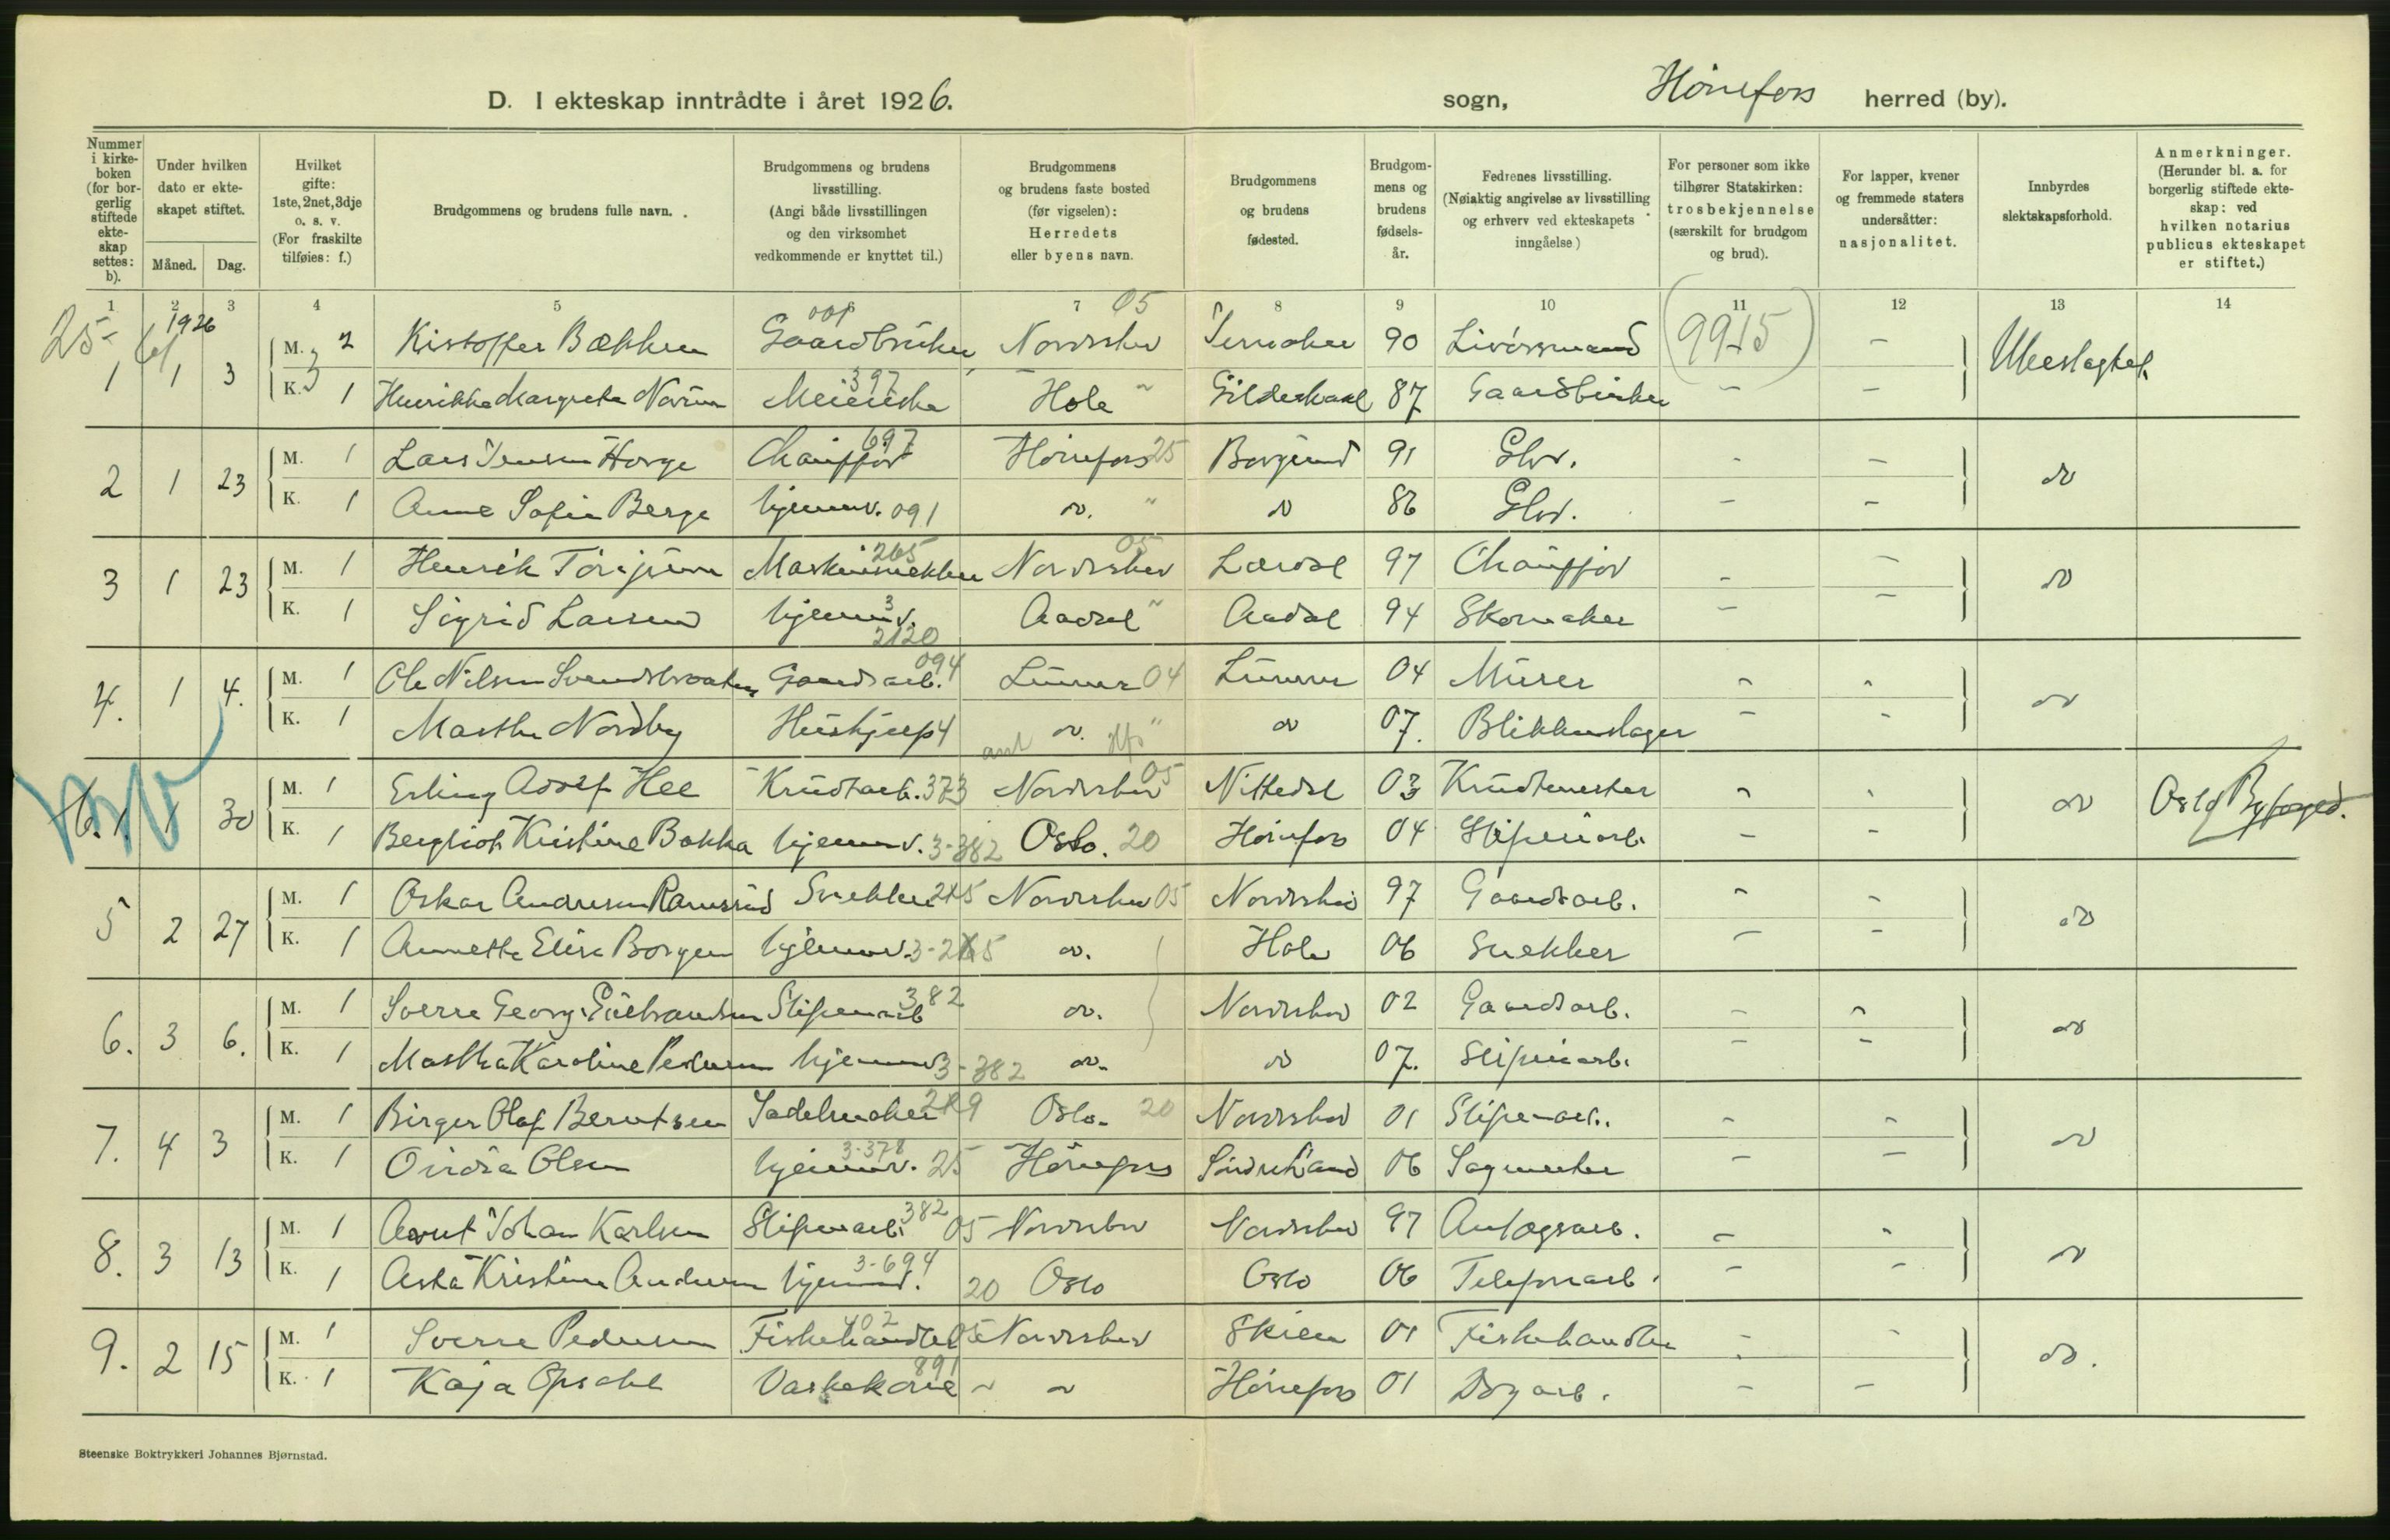 D. I ekteskap inntrådte i året 1926. sogn, Hönefoss herred (by).
Nummer i kirkeboken (for borgerlig stiftede ekteskap settes: b).
Under hvilken dato er ekteskapet stiftet.
Måned. Dag.
Hvilket gifte: 1ste, 2net, 3dje o. s. v. (For fraskilte tilføies: f.)
Brudgommens og brudens fulle navn.
Brudgommens og brudens livsstilling. (Angi både livsstillingen og den virksomhet vedkommende er knyttet til.)
Brudgommens og brudens faste bosted (før vigselen): Herredets eller byens navn.
Brudgommens og brudens fødested.
Brudgommens og brudens fødselsår.
Fedrenes livsstilling. (Nøiaktig angivelse av livsstilling og erhverv ved ekteskapets inngåelse)
For personer som ikke tilhører Statskirken: trosbekjennelse (særskilt for brudgom og brud).
For lapper, kvener og fremmede staters undersåtter: nasjonalitet.
Innbyrdes slektskapsforhold.
Anmerkninger. (Herunder bl. a. for borgerlig stiftede ekteskap: ved hvilken notarius publicus ekteskapet er stiftet.)
1 2 3 4 5 6 7 8 9 10 11 12 13 14
25 1926 001 05 9915
1 1 3 M. 2 Kistoffer Bækken Gaardbruker Norderhov 90 - Ubeslægtet
K. 1 Henrikke Margrete 397 Meierske Hole " Gildeskaal 87 Gaardbruker - -
2 1 23 M. 1 Lars Jensen Horge 697 Chauffør Hönefoss 25 Borgund 91 - - do
K. 1 Anne Sofie Berge hjemmev. 091 do. " do 86 - -
3 1 23 M. 1 Henrik Torjussen 265 Maskinsnekker Norderhov 05 Lærdal 97 Chauffør - - do
K. 1 Sigrid Larsen hjemmev. 3 2120 Aadal " Aadal 94 Skomaker - -
4. 1 4. M. 1 Ole Nilsen Gaardsarb. 094 Lunner 04 Lunner 04 Murer - - do
K. 1 Marthe Nordby Hushjelp 4 do. " do 07. Blikkenslager - -
1 30 M. 1 Erling Adolf Hee Krudtarb. 373 Norderhov 05 Nittedal 03 Krudtmester - - do Oslo Byfoged.
K. 1 Bergliot Kristine Bakka hjemmev. 3-382 Oslo. 20 Hönefoss 04 Sliperiarb. - -
5 2 27 M. 1 Oskar Andresen Ramsrud Snekker 05 Norderhov Norderhov 97 Gaardsarb. - - do
K. 1 Annette Elise Borgen hjemmev. do. Hole 06 Snekker - -
6. 3 6. M. 1 Sverre Georg Gulbrandsen Sliperiarb 382 do. Norderhov 02 Gaardsarb. - - do
K. 1 Martha Karoline Pedersen hjemmev 3-382 do. do 07. Sliperiarb. - -
7. 4 3 M. 1 Birger Olaf Berntsen Sadelmaker Oslo. 20 Norderhov 01 Sliperiarb. - - do
K. 1 Ovidia Olsen hjemmev. 3-378 25 Hönefoss 06 Sagmester - -
8. 3 13 M. 1 Arnt Johan Karlsen Sliperiarb. 382 05 Norderhov Norderhov 97 Anlægsarb. - - do
K. 1 Asta Kristine Andersen hjemmev. 3-694 20 Oslo Oslo 06 Telefonarb. - -
9. 2 15 M. 1 Sverre Pedersen Fiskehandler 402 05 Norderhov Skien 01 Fiskehandler - - do.
K. 1 Kaja Opsahl Vaskekone 891 " " Hönefoss 01 Dagarb. - -
Steenske Boktrykkeri Johannes Bjørnstad.